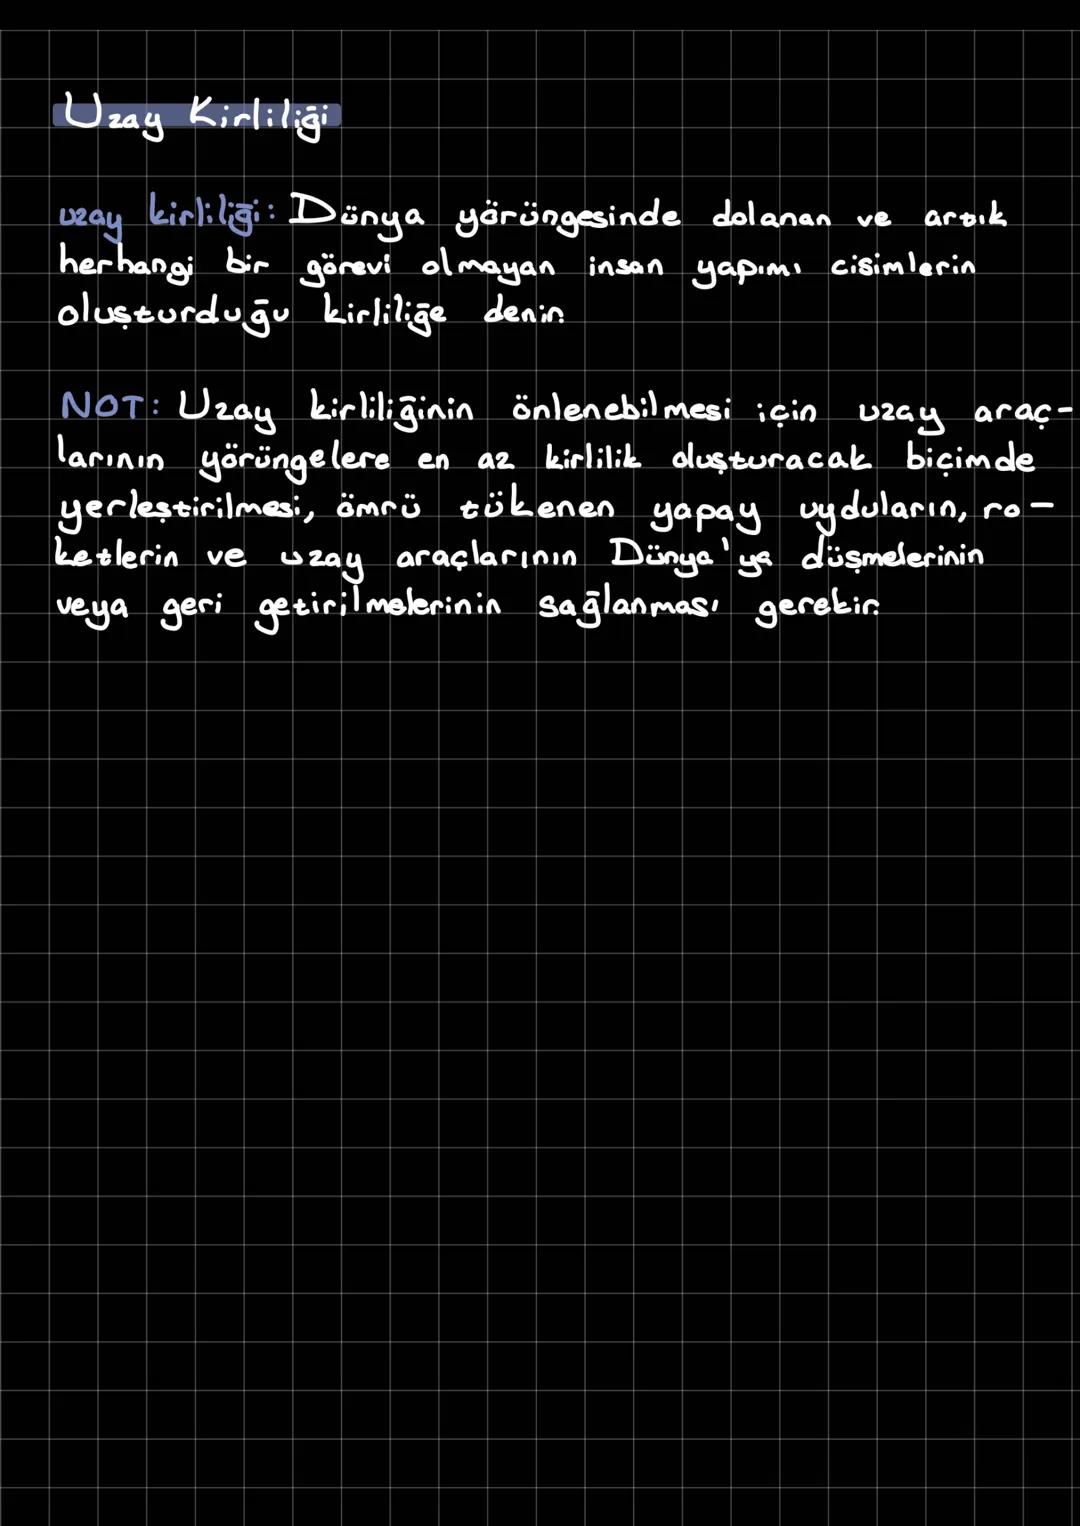 Uzay Kirliliği
uzay kirliliği: Dünya yörüngesinde dolanan ve artık
herhangi bir görevi olmayan insan yapımı cisimlerin
oluşturduğu kirliliğe denir.
NOT: Uzay kirliliğinin önlenebilmesi için uzay araç-
larının yörüngelere en az kirlilik oluşturacak biçimde
yerleştirilmesi, ömrü tükenen yapay uyduların, ro-
ketlerin ve uzay araçlarının Dünya'ya düşmelerinin
veya geri getirilmelerinin sağlanması gerekir.